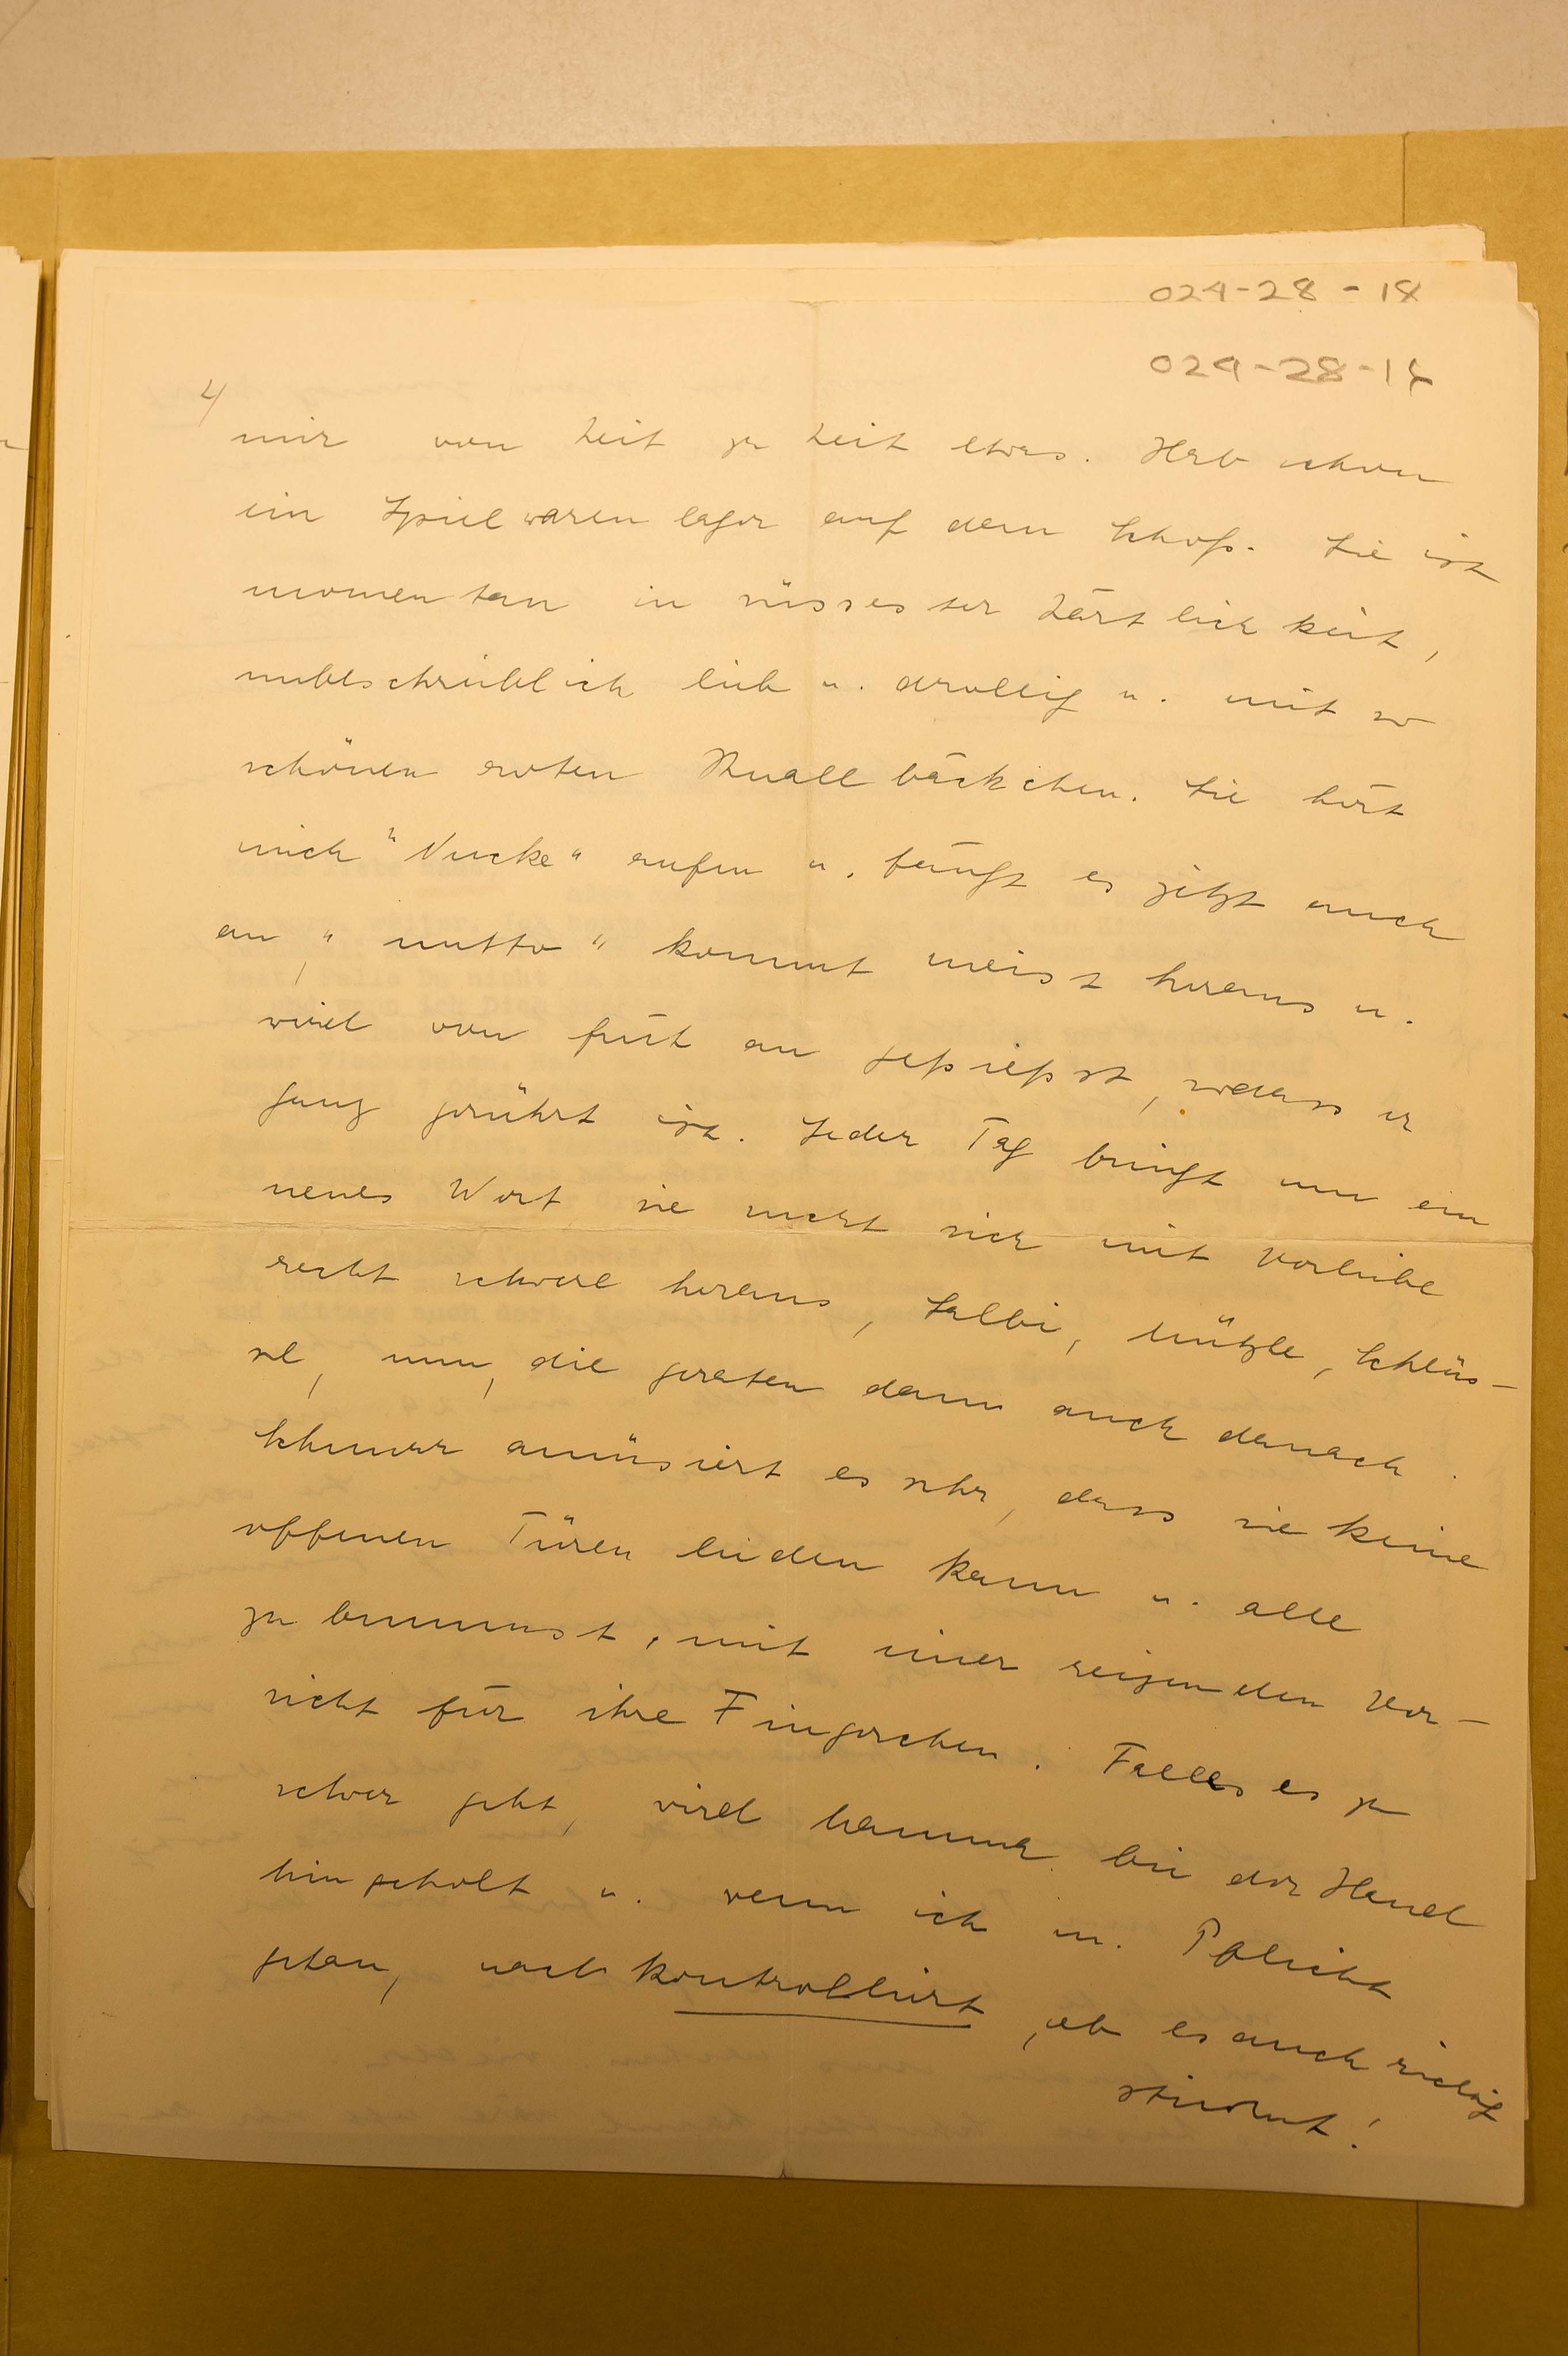 024-28-18
024-28-18
4/
mir von Zeit zu Zeit etwas. Hab schon
ein Spielwarenlager auf dem Schoß. Sie ist
momentan in süssester Zärtlichkeit,
unbeschreiblich lieb u. drollig u. mit so
schönen roten Knallbäckchen. Sie hört
mich "Nucke" rufen u. fängt es jetzt auch
an, "nutto" kommt meist heraus u.
wird von früh an gepiepst, sodass er
ganz gerührt ist. Jeder Tag bringt nun ein
neues Wort sie sucht sich mit Vorliebe
recht schwere heraus, Salbi, Mützle, Schlüs-
sel, nun, die geraten dann auch danach.
amüsiert es sehr, dass sie keine
offenen Türen leiden kann u. alle
zu bummst, mit einer reizenden Vor-
sicht für ihre Fingerchen. Falls es zu
schwer geht, wird Mamma bei der Hand
hingeholt u. wenn ich m. Pflicht
getan, noch kontrolliert, ob es auch richtig
stimmt!